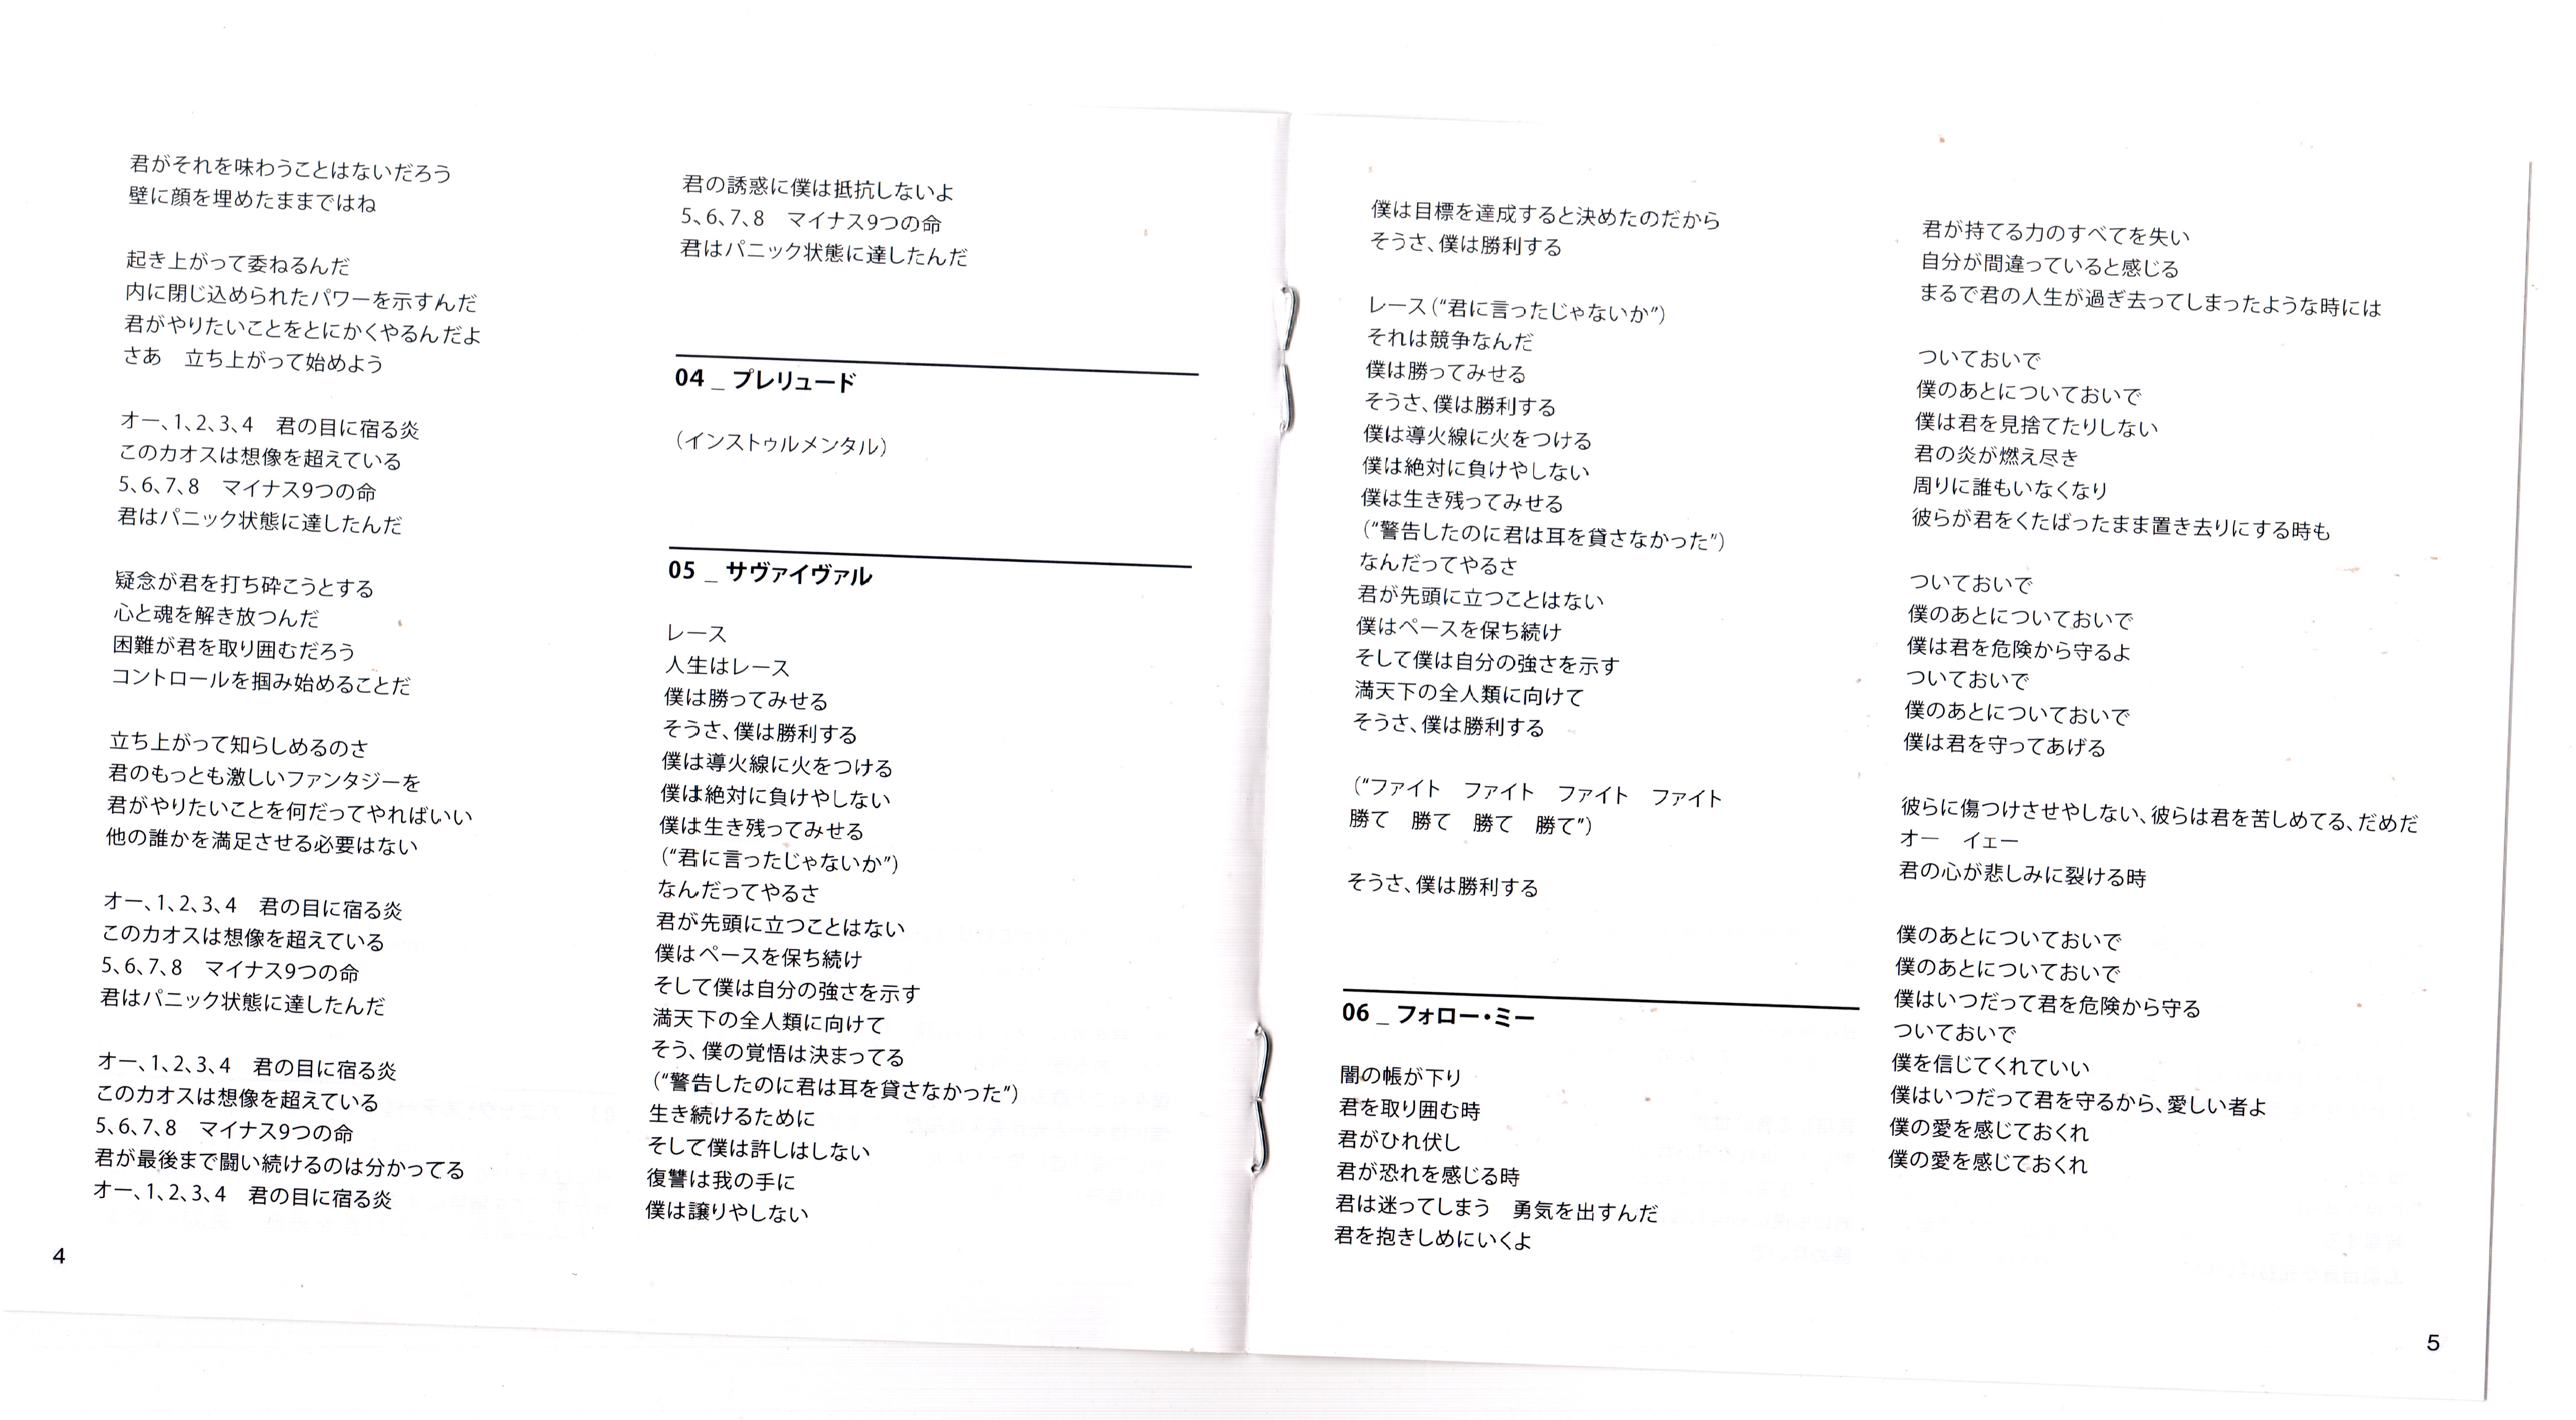 君がそれを味わうことはないだろう
壁に顔を埋めたままではね
起き上がって委ねるんだ
内に閉じ込められたパワーを示すんだ
君がやりたいことをとにかくやるんだよ
さあ　立ち上がって始めよう
オー、1、2、3、4　君の目に宿る炎
このカオスは想像を超えている
5、6、7、8　マイナス9つの命
君はパニック状態に達したんだ
疑念が君を打ち砕こうとする
心と魂を解き放つんだ
困難が君を取り囲むだろう
コントロールを掴み始めることだ
立ち上がって知らしめるのさ
君のもっとも激しいファンタジーを
君がやりたいことを何だってやればいい
他の誰かを満足させる必要はない
オー、1、2、3、4　君の目に宿る炎
このカオスは想像を超えている
5、6、7、8　マイナス9つの命
君はパニック状態に達したんだ
オー、1、2、3、4　君の目に宿る炎
このカオスは想像を超えている
5、6、7、8　マイナス9つの命
君が最後まで闘い続けるのは分かってる
オー、1、2、3、4　君の目に宿る炎
4
君の誘惑に僕は抵抗しないよ
5、6、7、8　マイナス9つの命
君はパニック状態に達したんだ
04 _ プレリュード
（インストゥルメンタル）
05 _ サヴァイヴァル
レース
人生はレース
僕は勝ってみせる
そうさ、僕は勝利する
僕は導火線に火をつける
僕は絶対に負けやしない
僕は生き残ってみせる
（“君に言ったじゃないか”）
なんだってやるさ
君が先頭に立つことはない
僕はペースを保ち続け
そして僕は自分の強さを示す
満天下の全人類に向けて
そう、僕の覚悟は決まってる
（“警告したのに君は耳を貸さなかった”）
生き続けるために
そして僕は許しはしない
復讐は我の手に
僕は譲りやしない
僕は目標を達成すると決めたのだから
そうさ、僕は勝利する
レース（“君に言ったじゃないか”）
それは競争なんだ
僕は勝ってみせる
そうさ、僕は勝利する
僕は導火線に火をつける
僕は絶対に負けやしない
僕は生き残ってみせる
（“警告したのに君は耳を貸さなかった”）
なんだってやるさ
君が先頭に立つことはない
僕はペースを保ち続け
そして僕は自分の強さを示す
満天下の全人類に向けて
そうさ、僕は勝利する
（“ファイト　ファイト　ファイト　ファイト
勝て　勝て　勝て　勝て”）
そうさ、僕は勝利する
06 _ フォロー・ミー
闇の帳が下り
君を取り囲む時
君がひれ伏し
君が恐れを感じる時
君は迷ってしまう　勇気を出すんだ
君を抱きしめにいくよ
君が持てる力のすべてを失い
自分が間違っていると感じる
まるで君の人生が過ぎ去ってしまったような時には
ついておいで
僕のあとについておいで
僕は君を見捨てたりしない
君の炎が燃え尽き
周りに誰もいなくなり
彼らが君をくたばったまま置き去りにする時も
ついておいで
僕のあとについておいで
僕は君を危険から守るよ
ついておいで
僕のあとについておいで
僕は君を守ってあげる
彼らに傷つけさせやしない、彼らは君を苦しめてる、だめだ
オー　イェー
君の心が悲しみに裂ける時
僕のあとについておいで
僕のあとについておいで
僕はいつだって君を危険から守る
ついておいで
僕を信じてくれていい
僕はいつだって君を守るから、愛しい者よ
僕の愛を感じておくれ
僕の愛を感じておくれ
5